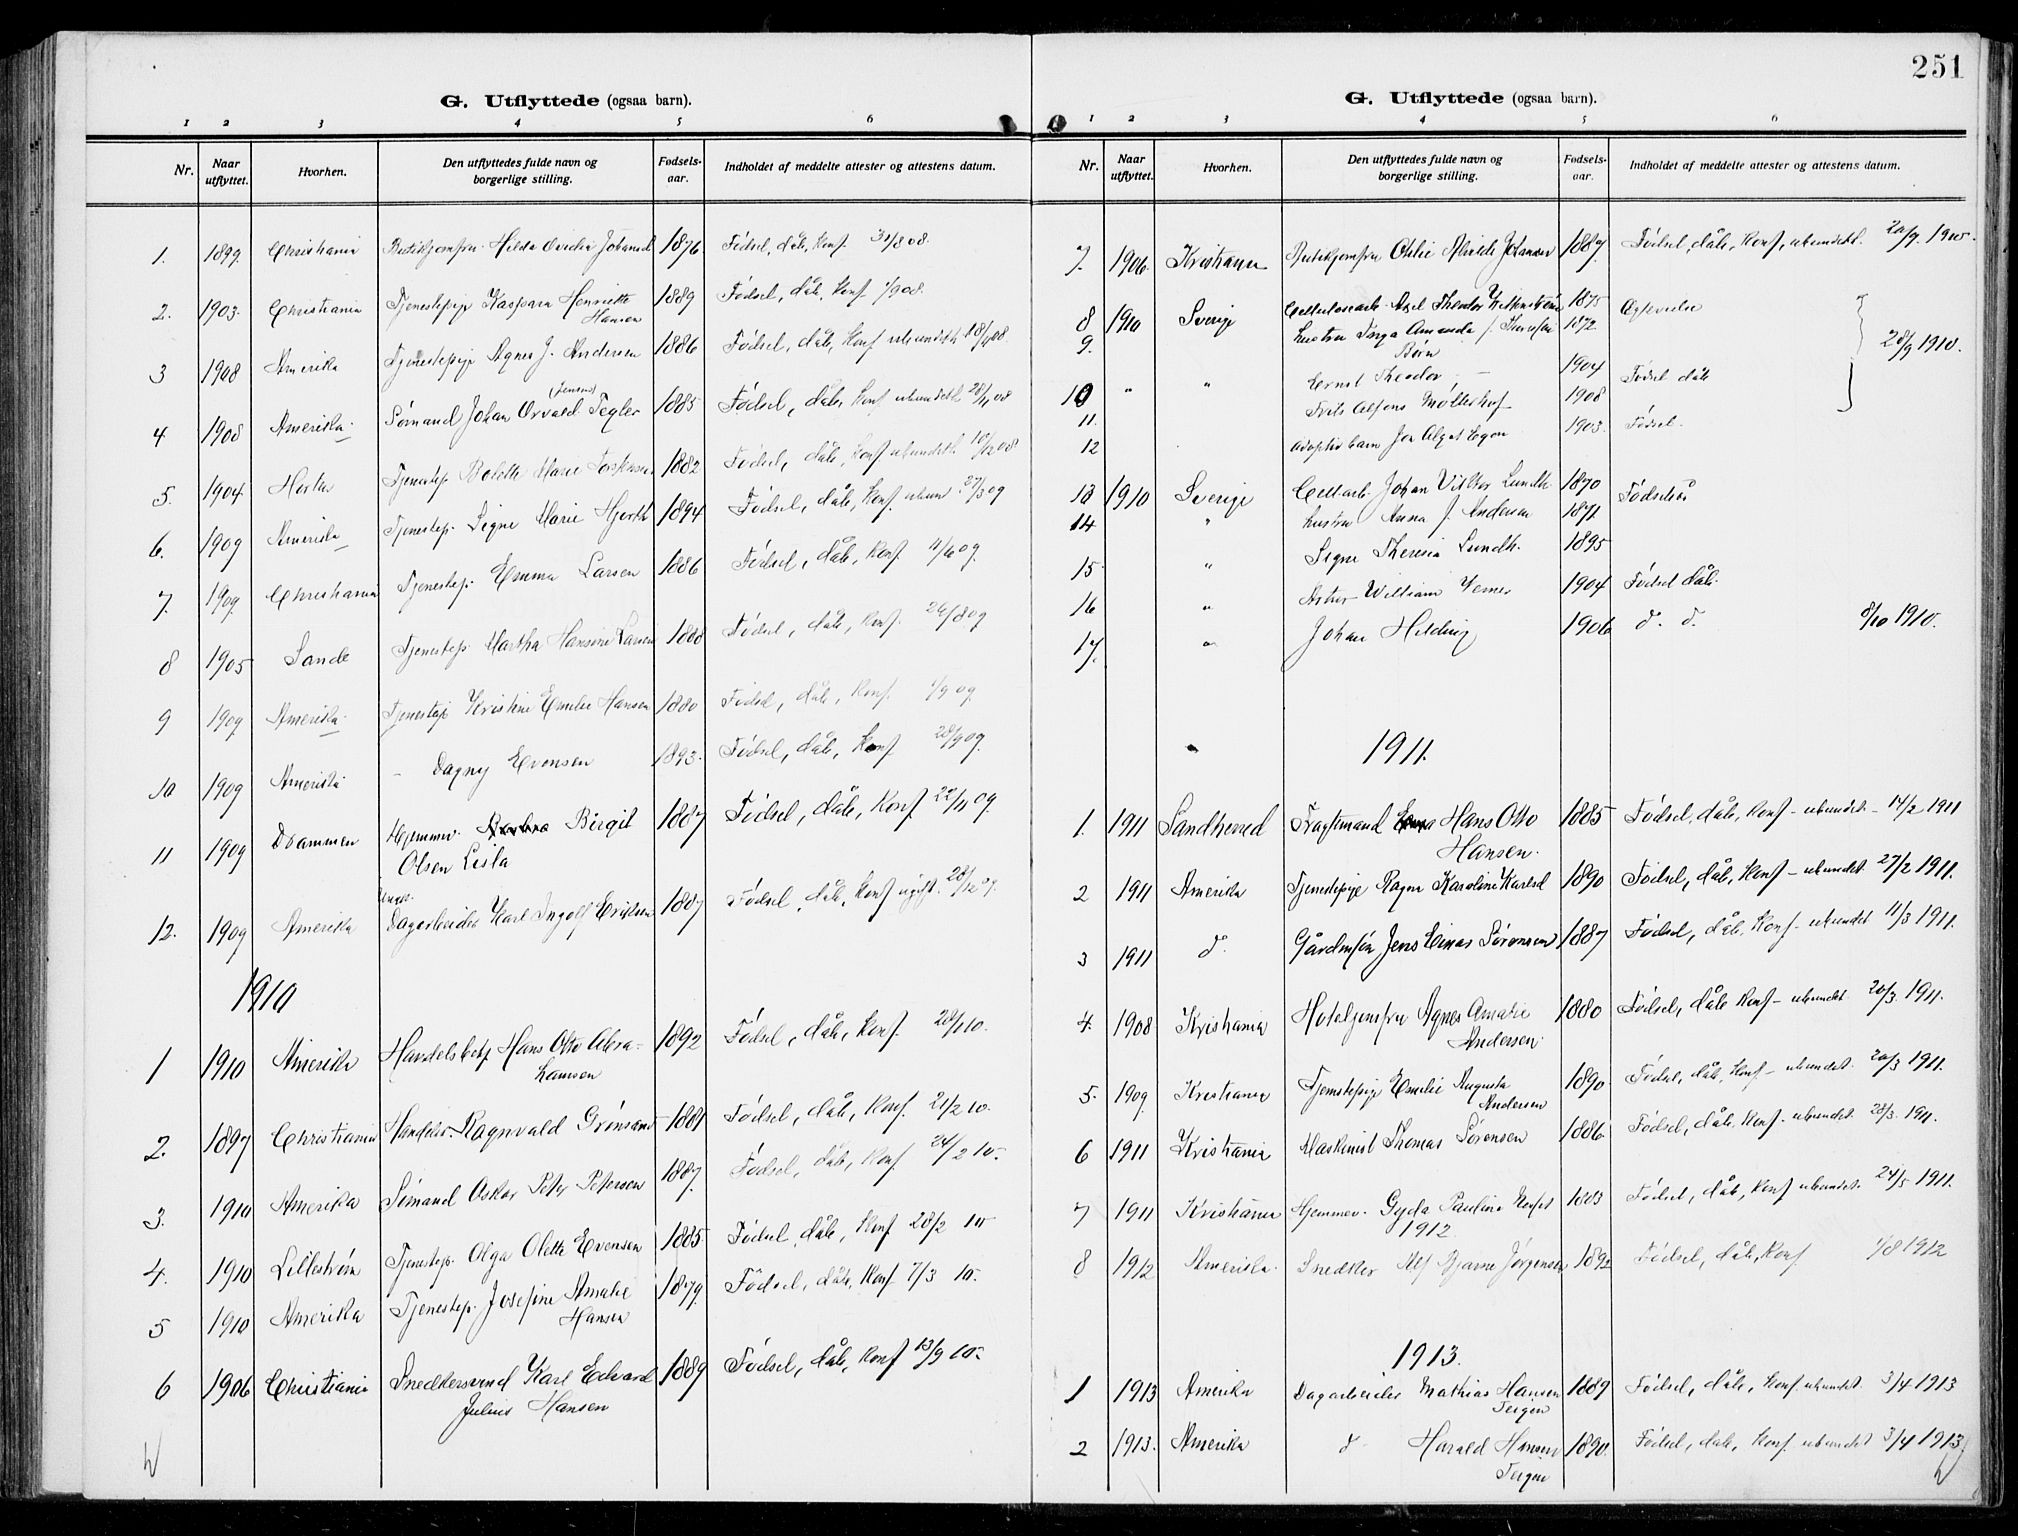 G. Utflyttede (ogsaa barn).
1 2 3 4 5 6
Nr. Naar utflyttet. Hvorhen. Den utflyttedes fulde navn og borgerlige stilling. Fødsels-aar. Indholdet af meddelte attester og attestens datum.
1. 1899. Christiania Butikjomfru Hilda Ovidia Johansd 1876 Fødsel, dåb, Konf. 31/8 08.
2. 1903. Christiania Tjenestepige Kaspara Henriette 1889 Fødsel, dåb, Konf 1/9 08.
Hansen
3 1908 Amerika Tjenestepige Agnes J. Andersen 1886 Fødsel, dåb, Konf ubundethed
(Jensen)
4 1908 Amerika Sømand Johan Orvald Tegler 1885 Fødsel, dåb, Konf ubundeth. 28/11 08
5. 1904 Horten Tjenestep Bolette Marie 1882 Fødsel, dåb, Konf ubundeth. 10/12 08
6. 1909 Amerika Tjenestep. Signe Marie Hjorth 1894 Fødsel, dåb, Konf. ubun. 27/3 09
7. 1909. Christiania Tjenestep. Emma Larsen 1886 Fødsel, dåb, Konf. 11/6 09.
8 1905 Sande Tjenestep. Martha Hansine Larsen 1888 Fødsel, dåb, Konf. 24/8 09
9 1909 Amerika Tjenestep Kristine Emilie Hansen 1880 Fødsel, dåb, Konf. 1/9 09.
10 1909 Amerika - Dagny Evensen 1893. Fødsel, dåb, Konf 28/9 09.
11 1909 Drammen Hjemmev. Birgit 1887 Fødsel, dåb, Konf. 22/11 09.
Olsen Lisla
Ungk.
12. 1909 Amerika Dagarbeider Karl Ingolf Eriksen 1887 Fødsel, dåb, Konf ugift. 28/12 09.
1910
1 1910 Amerika Handelsbetj Hans Otto Abra- 1892 Fødsel, dåb, Konf. 28/1 10.
hamsen
2. 1897 Christiania Handelsr. Ragnvald Grønsand 1881 Fødsel, dåb, Konf. 21/2 10.
3. 1910 Amerika Sømand Oskar Peter Petersen 1887. Fødsel, dåb, Konf. 24/2 10.
4. 1910 Lillestrøm Tjenestep. Olga Olette Evensen 1885. Fødsel, dåb, Konf. 28/2 10
5 1910 Amerika Tjenestep. Josefine Amalie 1879. Fødsel, dåb, Konf. 7/3 10.
Hansen
6 1906 Christiania Snedkersvend Karl Edvard 1889 Fødsel, dåb, Konf 13/9 10.
Julius Hansen
251
G. Utflyttede (ogsaa barn).
1 2 3 4 5 6
Nr. Naar utflyttet. Hvorhen. Den utflyttedes fulde navn og borgerlige stilling. Fødsels-aar. Indholdet af meddelte attester og attestens datum.
7. 1906. Kristiania Butikjomfru Othlie Johansen 1887 Fødsel, dåb, Konf, ubundeth. 20/9 1910.
8 1910 Sverige Cellulosearb. Axel Theodor 1875 Ægtevielse
9. hustru Inga Amanda f. 1872 28/9 1910.
Børn
10 " " Ernst Theodor - 1904 Fødsel dåb
11. Frits Alfons 1908
12 Adoptivbarn Jon Algot Egon 1903. Fødsel.
13 1910 Sverige Cell.arb. Johan Viktor Lundh 1870 Fødselsår
14 " hustru Anna J. Andersen 1871.
15 " Signe Theresia Lundh. 1895
16 " Artur William Verner 1904 Fødsel dåb.
17. " Johan Hilding 1906 d. d. 8/10 1910.
" 1911.
1. 1911 Sandherred Fragtmand Hans Otto 1885 Fødsel, dåb, Konf - ubundet - 14/2 1911
Hansen.
2 1911 Amerika Tjenestepige Ragna Karoline Karlsd 1890 Fødsel, dåb, Konf - ubundet. 27/2 1911.
3 1911 d. Gårdmsøn Jens Einar Sørensen 1887 Fødsel, dåb, Konf - ubundet 11/3 1911.
4. 1908 Kristiania Hoteljomfru Agnes Amalie 1880 Fødsel, dåb Konf - ubundet. 20/3. 1911.
Andersen.
5. 1909. Kristiania Tjenestepige Emilie Augusta 1890 Fødsel, dåb, Konf - ubundet. 20/3 1911.
Andersen
6 1911 Kristiania Maskinist Thomas Sørensen 1886. Fødsel, dåb, Konf - ubundet. 28/3. 1911.
7 1911 Kristiania Hjemmev. Gyda Pauline 1883 Fødsel, dåb, Konf ubundet. 24/5 1911.
1912
8 1912 Amerika. Snedker Alf Bjarne Jørgensen 1892 Fødsel, dåb, Konf 1/8 1912
1913.
1 1913 Amerika Dagarbeider Mathias Hansen 1889 Fødsel, dåb, Konf. ubundet. 3/4 1913
Teigen
2 1913. Amerika d. Harald Hansen 1890. Fødsel, dåb, Konf. ubundet 3/4 1913
Teigen